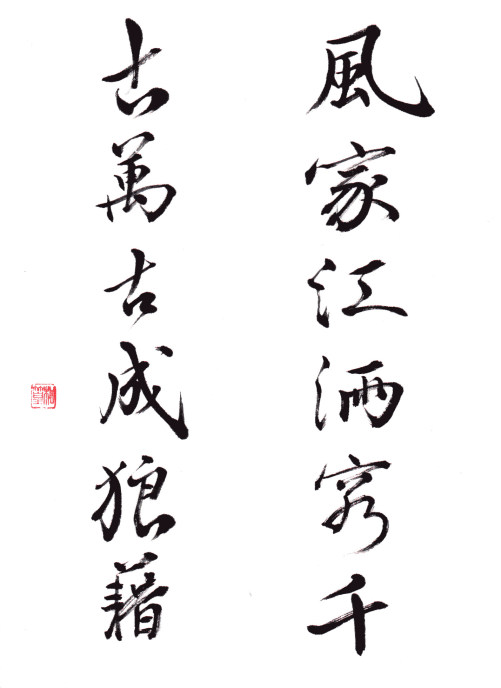 風家江洒穷千
古萬古成狼藉